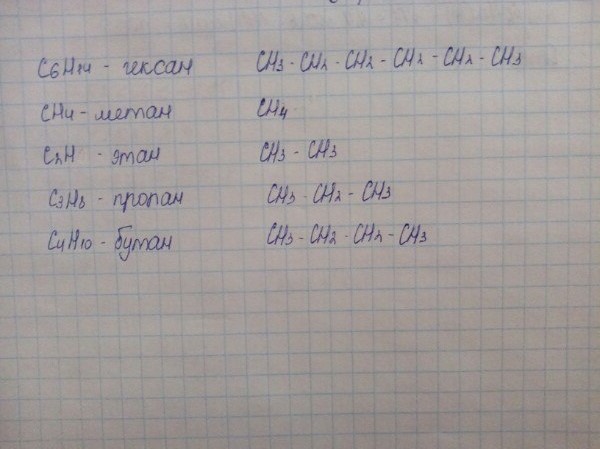 C6H14 - гексан CH3 - CH2 - CH2 - CH2 - CH2 - CH3
CH4 - метан CH4
C2H - этан CH3 - CH3
C3H8 - пропан CH3 - CH2 - CH3
C4H10 - бутан CH3 - CH2 - CH2 - CH3